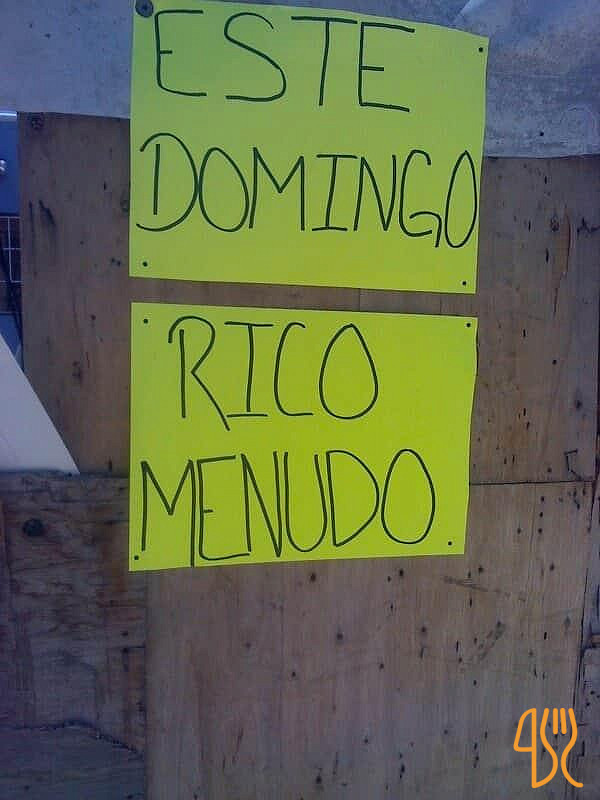 ESTE
DOMINGO
RICO
MENUDO